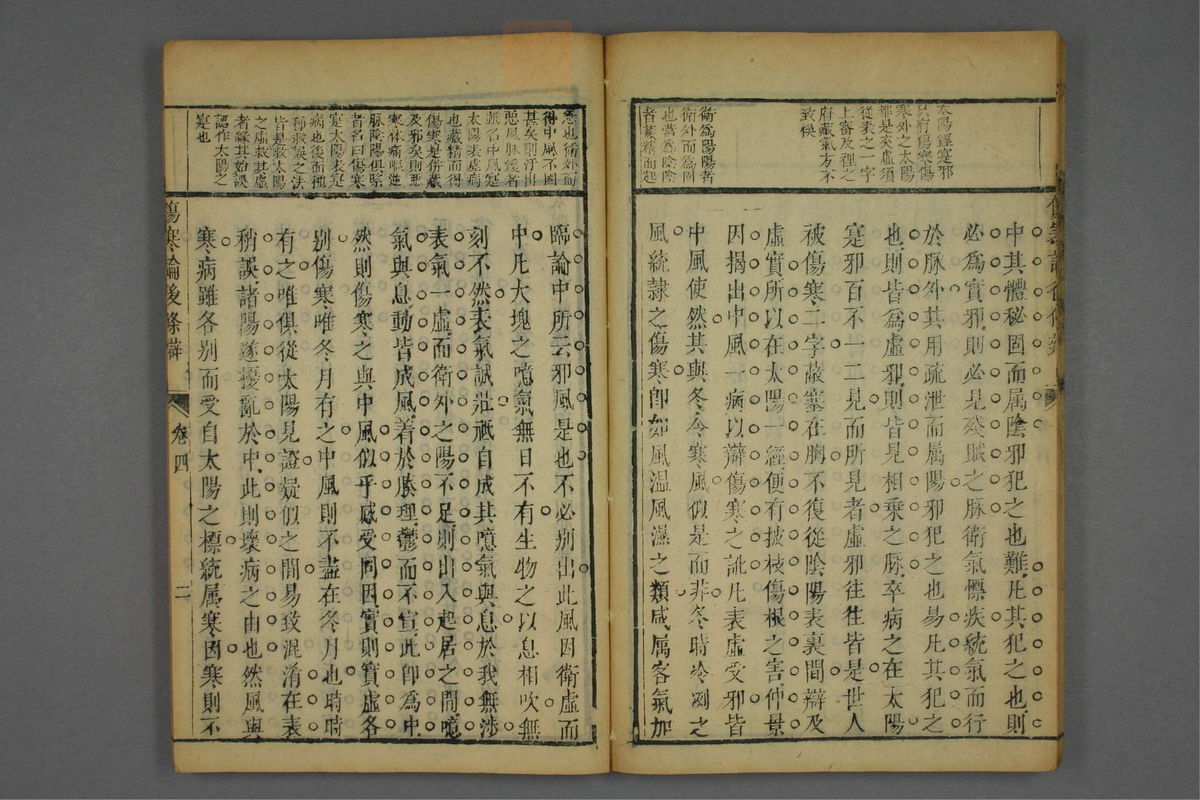 太陽經寔邪
寒外之太陽
都是表虛須
從表之一字
上審及裡之
府藏氣方不
致悞
衛為陽陽者
衛外而為固
也營為陰陰
者藏精而起
中其體秘固而属陰邪犯之也難凡其犯之也則
必為實邪則必見殘賊之脉衛氣慓疾統氣而行
於脉外其用疏泄而属陽邪犯之也易凡其犯之
也則皆為虛邪則皆見相乘之脉卒病之在太陽
寔邪百不一二見而所見者虛邪往往皆是世人
被傷寒二字叢塞在胸不復從陰陽表裏間辯及
虛實所以在太陽一經便有披枝傷根之害仲景
因揭出中風一病以辯傷寒之訛凡表虛受邪皆
中風使然其與冬令寒風似是而非冬時冷冽之
風統隷之傷寒卽如風溫風濕之類咸属客氣加
亟也衛外而
得中風不固
甚矣則汗出
惡風脉緩者
號名中風寔
太陽表虛病
也藏精而得
傷寒是併藏
及邪矣則惡
寒体痛嘔逆
脉陰陽俱緊
者名曰傷寒
寔太陽表寔
病也後而種
種救悞之法
皆是救太陽
之虛救其虛
者緣其始誤
認作太陽之
寔也
臨論中所云邪風是也不必别出此風因衛虛而
中凡大塊之噫氣無日不有生物之以息相吹無
刻不然表氣誠莊祇自成其噫氣與息於我無涉
表氣一虛而衛外之陽不足則出入起居之間噫
氣與息動皆成風着於腠理鬱而不宣此卽為中
然則傷寒之與中風似乎感受同因實則寶虛各
别傷寒唯冬月有之中風則不盡在冬月也時時
有之唯俱從太陽見證疑似之間易致混淆在表
稍誤諸陽遂擾亂於中此則壞病之由也然風與
寒病雖各别而受自太陽之標統属寒因寒則不
傷寒論後條辯
卷四
二